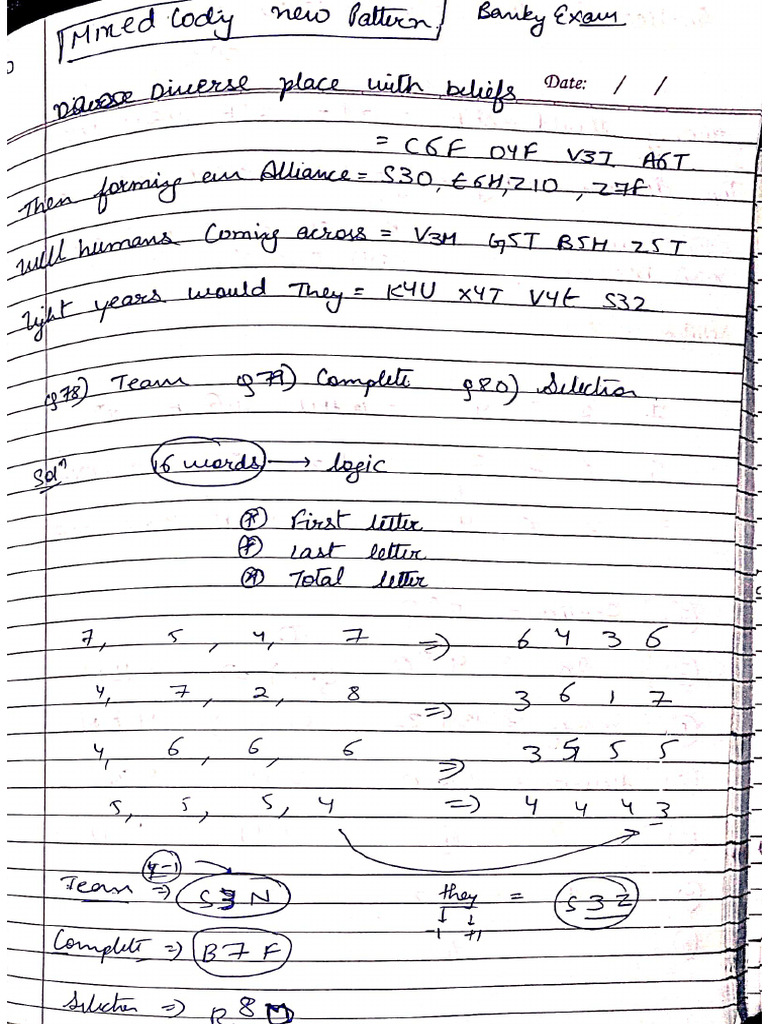 Mixed Cody new Pattern Banky Exam
Diverse place with beliefs Date: / /
= C6F O4F V3I A6T
Then forming an Alliance = S3O, E6H, Z1O, Z7F
Will humans Coming across = V3M G5T B5H Z5T
Light years would They = K4U X4T V4E S3Z
Q78) Team Q79) Complete Q80) Selection
Solⁿ 16 words → logic
* First letter
* Last letter
* Total letter
7, 5, 4, 7 ⇒ 6 4 3 6
4, 7, 2, 8 ⇒ 3 6 1 7
4, 6, 6, 6 ⇒ 3 5 5 5
5, 5, 5, 4 ⇒ 4 4 4 3
4-1
Team ⇒ S3N they = S3Z
-1 +1
Complete ⇒ B7F
Selection ⇒ R8